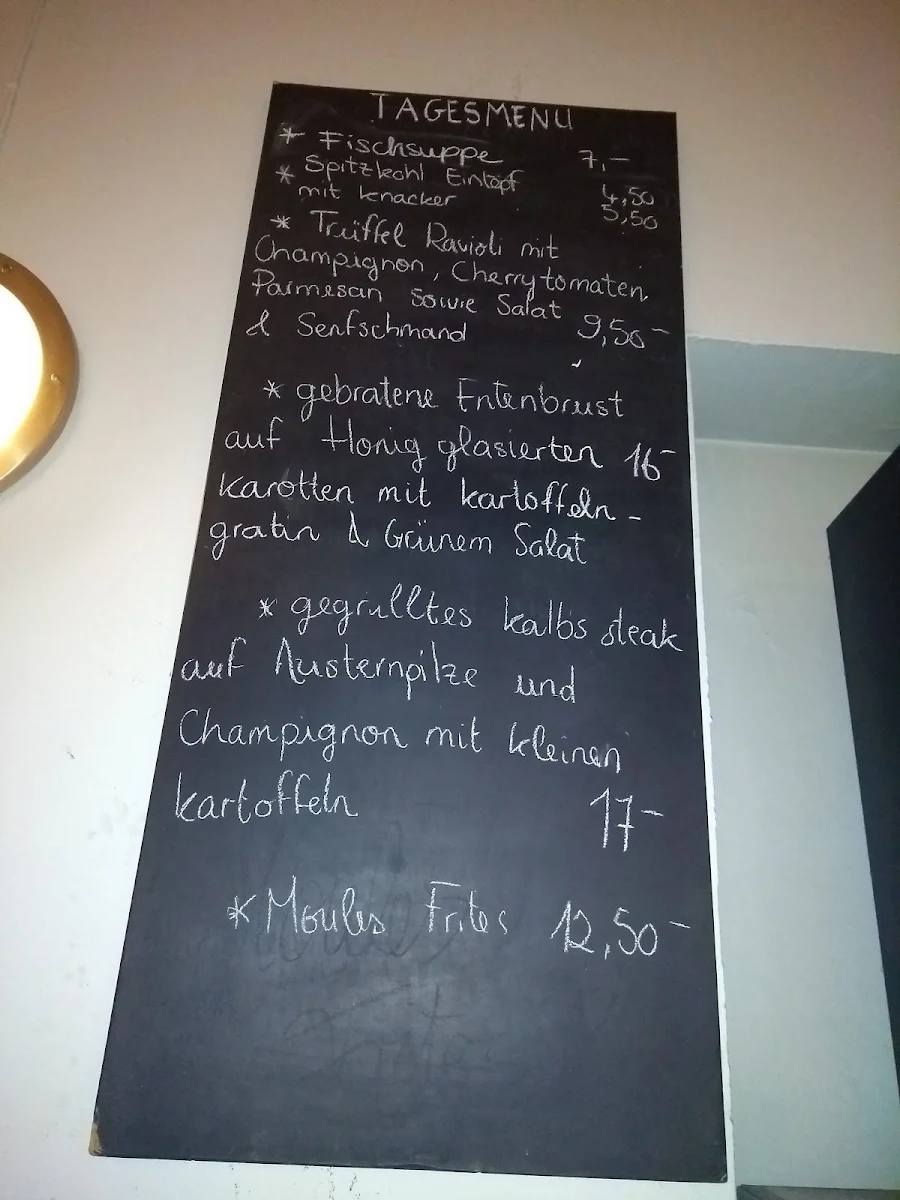 TAGESMENU
* Fischsuppe 7,-
* Spitzkohl Eintopf 4,50
mit knacker 5,50
* Trüffel Ravioli mit
Champignon, Cherrytomaten,
Parmesan sowie Salat
& Senfschmand 9,50-
* gebratene Entenbrust
auf Honig glasierten 16-
karotten mit kartoffeln-
gratin & Grünem Salat
* gegrilltes kalbs steak
auf Austernpilze und
Champignon mit kleinen
kartoffeln 17-
* Moules Frites 12,50-